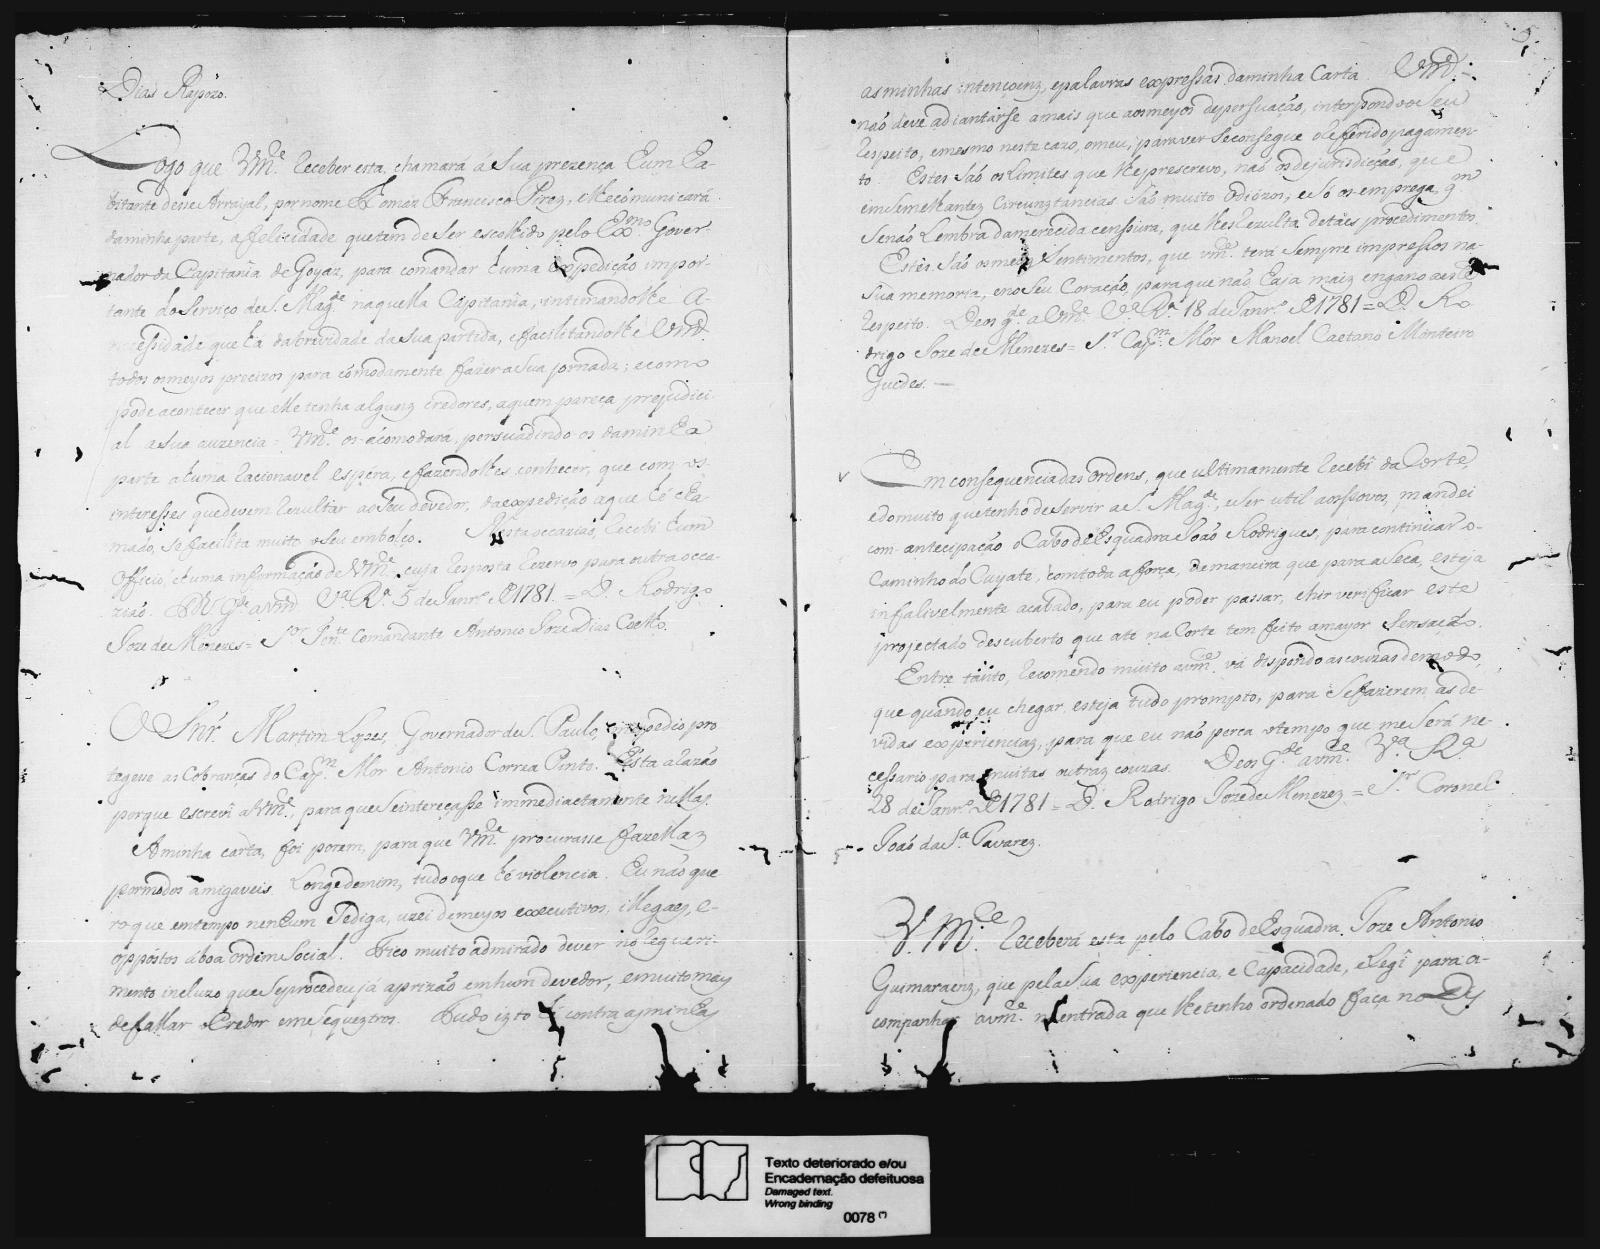 Dias Rapozo.
Logo que Vm.ce receber esta, chamará á Sua prezença hum ha-
bitante desse Arrayal, por nome Thomáz Francisco Pirez, e lhe cómunicará
da minha parte, a felicidade que tem de Ser escolhido pelo Ex.mo Gover-
nador da Capitania de Goyaz, para comandar huma expedição impor-
tante do Serviço de S. Mag.de naquella Capitania, intimandolhe a ne-
cessidade que há da brevidade da sua partida, e facilitandolhe Vm.ce
todos os meyos precizos para cómodamente fazer a Sua jornada; e como
pode acontecer que elle tenha algunz credores, a quem pareça prejudici-
al a Sua auzencia = Vm.ce os acómodará, persuadindo os da minha
parte a huma racionavel espéra, e fazendolhes conhecer, que com os
interesses que devem rezultar ao Seu devedor, da expedição a que hé cha-
mado, Se facilita muito o Seu embolço. Nesta occazião, recebi hum
Officio, e huma informação de Vm.ce, cuja resposta rezervo para outra occa-
zião. D.s G.de a Vm.ce V.a R.a 5 de Janr.o de 1781. = D. Rodrigo
Joze de Menezes = S.or Ten.te Comandante Antonio Joze Dias Coelho.
O Snr. Martim Lopes, Governador de S. Paulo, pro
tegese as Cobranças do Cap.m Mor Antonio Correa Pinto. Esta a razão
porque escrevi a Vm.ce, para que Se intereçasse immediactamente nellas.
A minha carta, foi porem, para que Vm.ce procurasse fazellaz
por modos amigaveis. Longe de mim, tudo o que hé violencia. Eu não que
ro que em tempo nenhum Se diga, uzei de meyos executivos, illegaes, e
oppóstos á boa ordem Social. Fico muito admirado de ver no requeri-
mento incluzo que Se procedeu já a prizão em hum devedor, e muito mais
de fallar o Credor em Sequeztros. Tudo izto hé contra as minhas
as minhas intençoenz, e palavras expressas da minha Carta. Vm.ce
não deve adiantarse a mais que aos meyos de persuação, interpondo o Seu
respeito, e mesmo neste cazo, o meu, para ver Se consegue o referido pagamen-
to. Estes São os Limites que lhe prescrevo, não os de jurisdicção, que
em Semelhantez Circunztancias São muito odiózos, e Só os emprega, q.m
Se não Lembra da merecida censsura, que lhes rezulta de táes procedimentos.
Estes São os meus Sentimentos, que Vm.ce terá Sempre impressos na
Sua memoria, e no Seu Coração, para que não haja maiz engano a este
respeito. Deos g.de a Vm.ce V.a R.a 18 de Janr.o de 1781 = D. Ro
drigo Joze de Menezes = S.r Cap.m Mór Manoel Caetano Monteiro
Guedes. —
Em consequencia das Ordens, que ultimamente recebi da Corte,
e do muito que tenho de Servir a S. Mag.de, e Ser util aos Povos, mandei
com antecipação o Cabo de Esquadra João Rodrigues, para continuar o
Caminho do Cuyate, com toda a força, de maneira que para a Seca, esteja
infalivelmente acabado, para eu poder passar, e hir verificar este
projectado descuberto que até na Corte tem feito a mayor Sensação.
Entre tanto, recomendo muito a Vm.ce vá dispondo as couzas de modo,
que quando eu chegar, esteja tudo prompto, para Se fazerem as de-
vidas experienciaz, para que eu não perca o tempo que me Será ne-
cessario para muitas outraz couzas. Deos G.de a Vm.ce V.a R.a
28 de Janr.o de 1781 = D. Rodrigo Joze de Menezes = S.r Coronel
João da S.a Tavarez.
V. M.ce receberá esta pelo Cabo de Esquadra Joze Antonio
Guimaraenz, que pela Sua experiencia, e Capacidade, elegi para a-
companhar a Vm.ce na entrada que lhe tenho ordenado faça no
Texto deteriorado e/ou
Encadernação defeituosa
Damaged text.
Wrong binding
0078 (*)